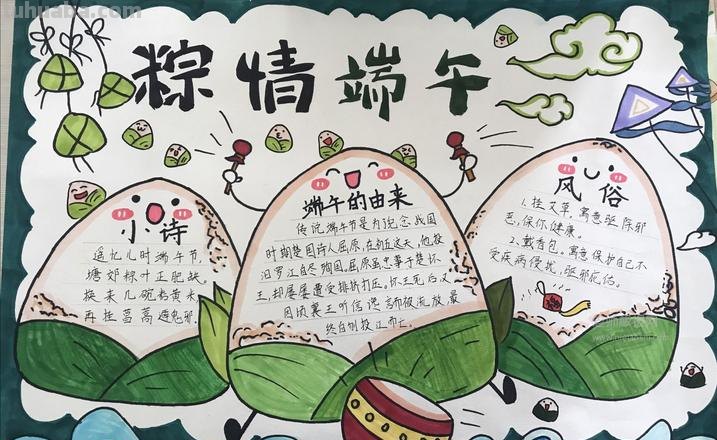 tuhuaba.com
粽情端午
小诗
遥忆儿时端午节,
塘郊粽叶正肥缺.
换来几碗
再挂菖蒿遇鬼邪.
端午的由来
传说端午节是为纪念战国
时期楚国诗人屈原,在初五这天,他投
汨罗江自尽殉国.屈原虽忠事于楚怀
王,却屡屡遭受排挤打压.怀王死后又
因顷襄王听信谗言而被流放,最
终自刎投江而亡.
风俗
1.挂艾草,寓意驱除邪
恶,保你健康.
2.戴香包,寓意保护自己不
受疾病侵扰,驱邪庇佑.